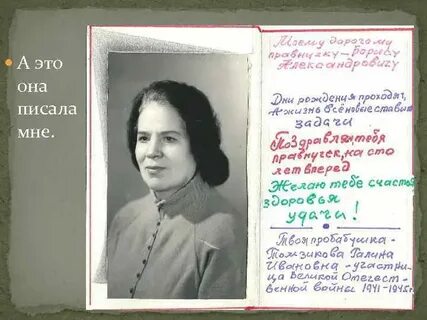 А это
она
писала
мне.
Моему дорогому
правнучку - Борису
Александровичу
Дни рождения проходят,
А жизнь всё новые ставит
задачи
Поздравляю тебя
правнучек, на сто
лет вперёд
Желаю тебе счастья
здоровья
удачи!
Твоя пробабушка -
Томзикова Галина
Ивановна - участни
ца Великой Отечест-
венной войны 1941-1945г.